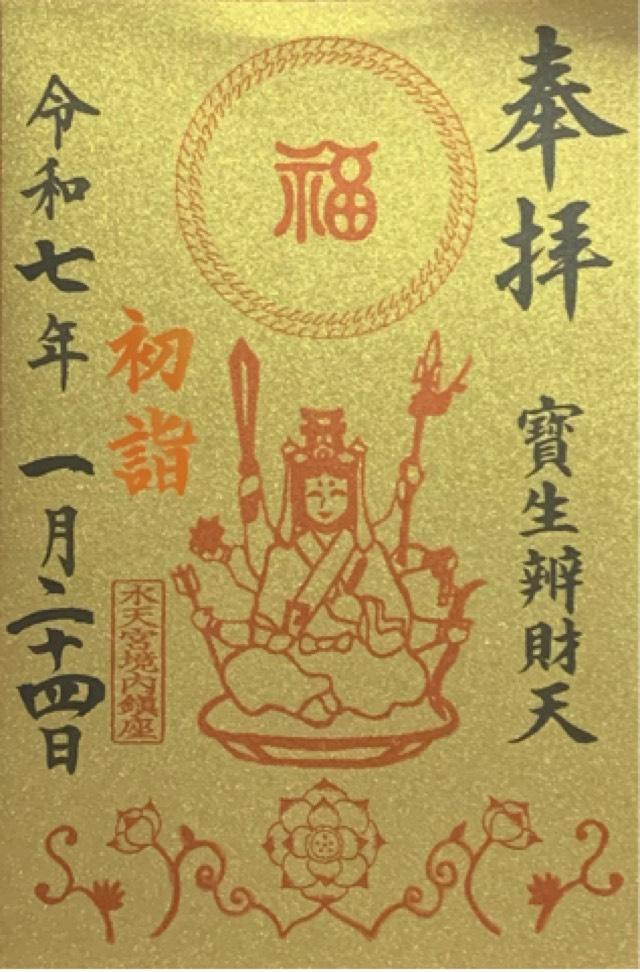 奉拝
寶生辨財天
福
初詣
水天宮境内鎮座
令和七年 一月二十四日